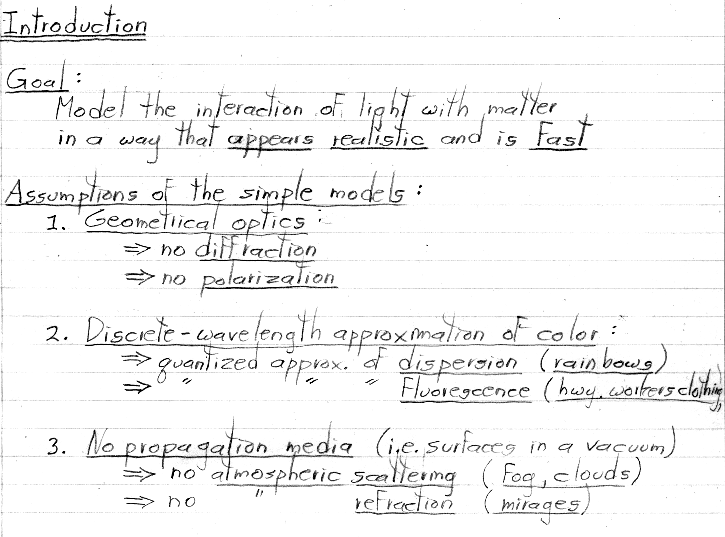 Introduction
Goal:
Model the interaction of light with matter
in a way that appears realistic and is fast
Assumptions of the simple models:
1. Geometrical optics:
⇒ no diffraction
⇒ no polarization
2. Discrete-wavelength approximation of color:
⇒ quantized approx. of dispersion (rainbows)
⇒ " " " Fluorescence (hwy. workers clothing)
3. No propagation media (i.e. surfaces in a vacuum)
⇒ no atmospheric scattering (fog, clouds)
⇒ no " refraction (mirages)